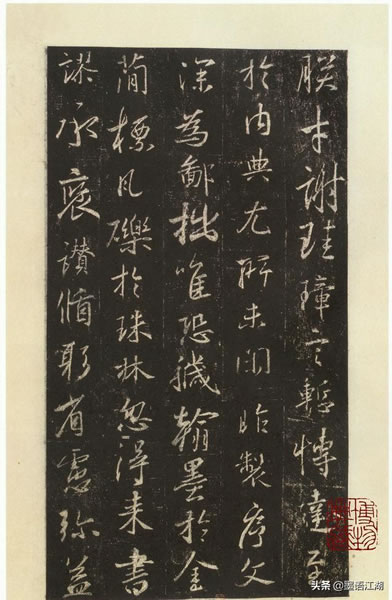 朕才謝珪璋言慙博達至
於內典尤所未閑昨製序文
深為鄙拙唯恐穢翰墨於金
簡標瓦礫於珠林忽得來書
謬承褒讚循躬省慮彌益
头条@墨语江湖